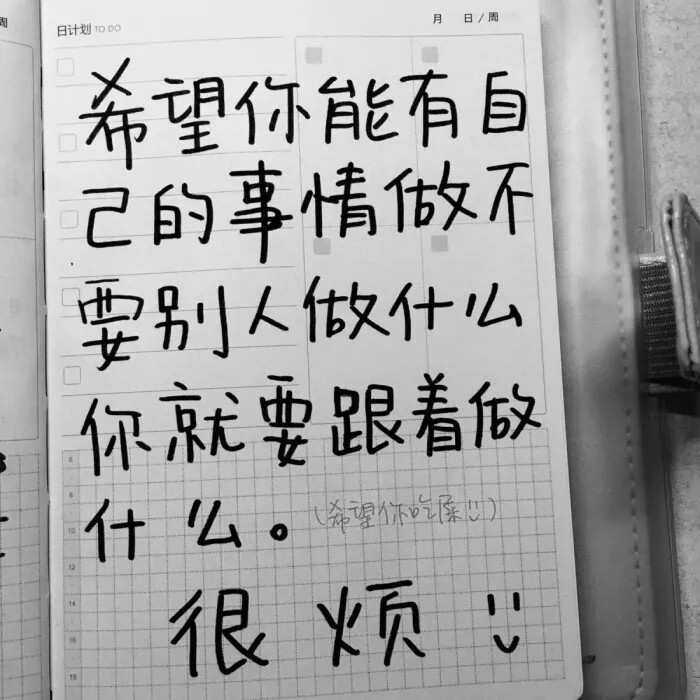 日计划 TO DO 月 日 / 周
希望你能有自
己的事情做不
要别人做什么
你就要跟着做
什么。(希望你吃屎)
很烦
6
8
10
12
14
16
18